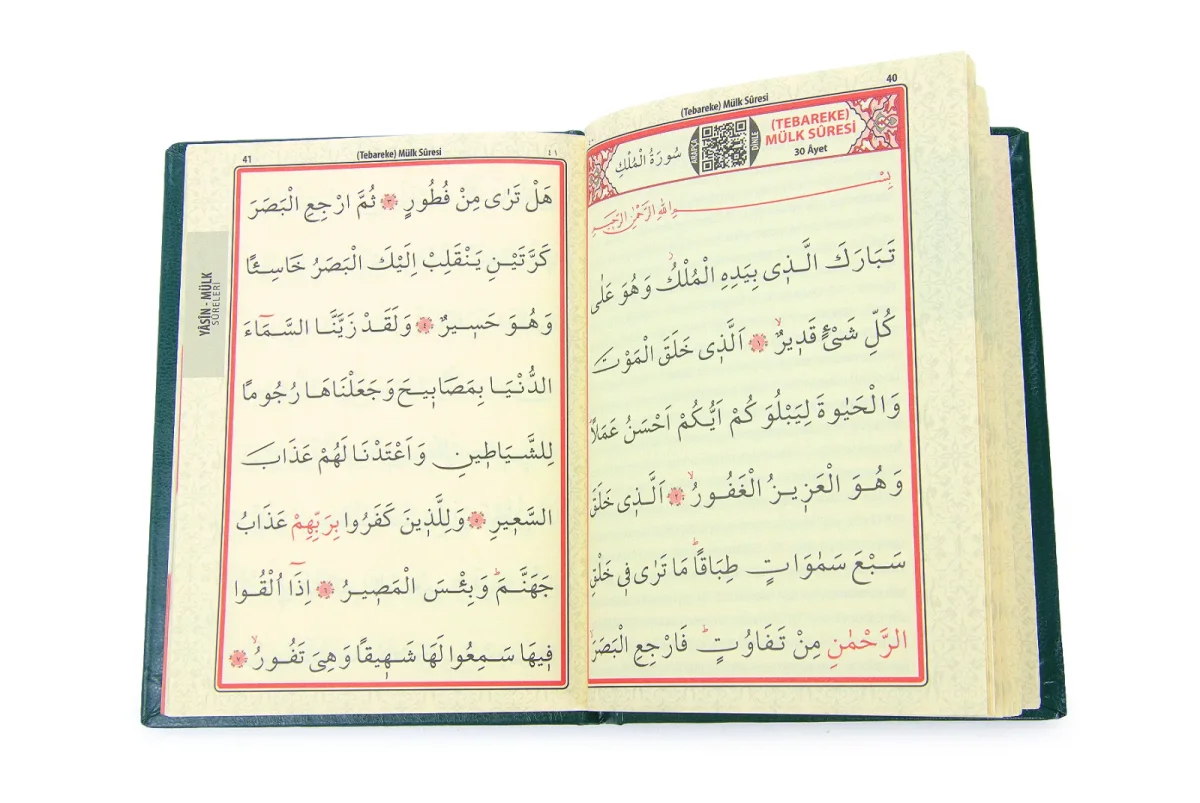 40
(Tebareke) Mülk Sûresi
(TEBAREKE)
MÜLK SÛRESİ
30 Âyet
ARAPÇA
DİNLE
سُورَةُ الْمُلْكِ
بِسْمِ اللّٰهِ الرَّحْمٰنِ الرَّحِيمِ
تَبَارَكَ الَّذ۪ى بِيَدِهِ الْمُلْكُۘ وَهُوَ عَلٰى
كُلِّ شَىْءٍ قَد۪يرٌۙ ﴿١﴾ اَلَّذ۪ى خَلَقَ الْمَوْتَ
وَالْحَيٰوةَ لِيَبْلُوَكُمْ اَيُّكُمْ اَحْسَنُ عَمَلًاۜ
وَهُوَ الْعَز۪يزُ الْغَفُورُۙ ﴿٢﴾ اَلَّذ۪ى خَلَقَ
سَبْعَ سَمٰوَاتٍ طِبَاقًاۜ مَا تَرٰى ف۪ى خَلْقِ
الرَّحْمٰنِ مِنْ تَفَاوُتٍۜ فَارْجِعِ الْبَصَرَۙ
41
(Tebareke) Mülk Sûresi
٤١
YÂSİN - MÜLK
SÛRELERİ
هَلْ تَرٰى مِنْ فُطُورٍ ﴿٣﴾ ثُمَّ ارْجِعِ الْبَصَرَ
كَرَّتَيْنِ يَنْقَلِبْ اِلَيْكَ الْبَصَرُ خَاسِئًا
وَهُوَ حَس۪يرٌ ﴿٤﴾ وَلَقَدْ زَيَّنَّا السَّمَٓاءَ
الدُّنْيَا بِمَصَاب۪يحَ وَجَعَلْنَاهَا رُجُومًا
لِلشَّيَاط۪ينِ وَاَعْتَدْنَا لَهُمْ عَذَابَ
السَّع۪يرِ ﴿٥﴾ وَلِلَّذ۪ينَ كَفَرُوا بِرَبِّهِمْ عَذَابُ
جَهَنَّمَۜ وَبِئْسَ الْمَص۪يرُ ﴿٦﴾ اِذَٓا اُلْقُوا
ف۪يهَا سَمِعُوا لَهَا شَه۪يقًا وَهِىَ تَفُورُۙ ﴿٧﴾